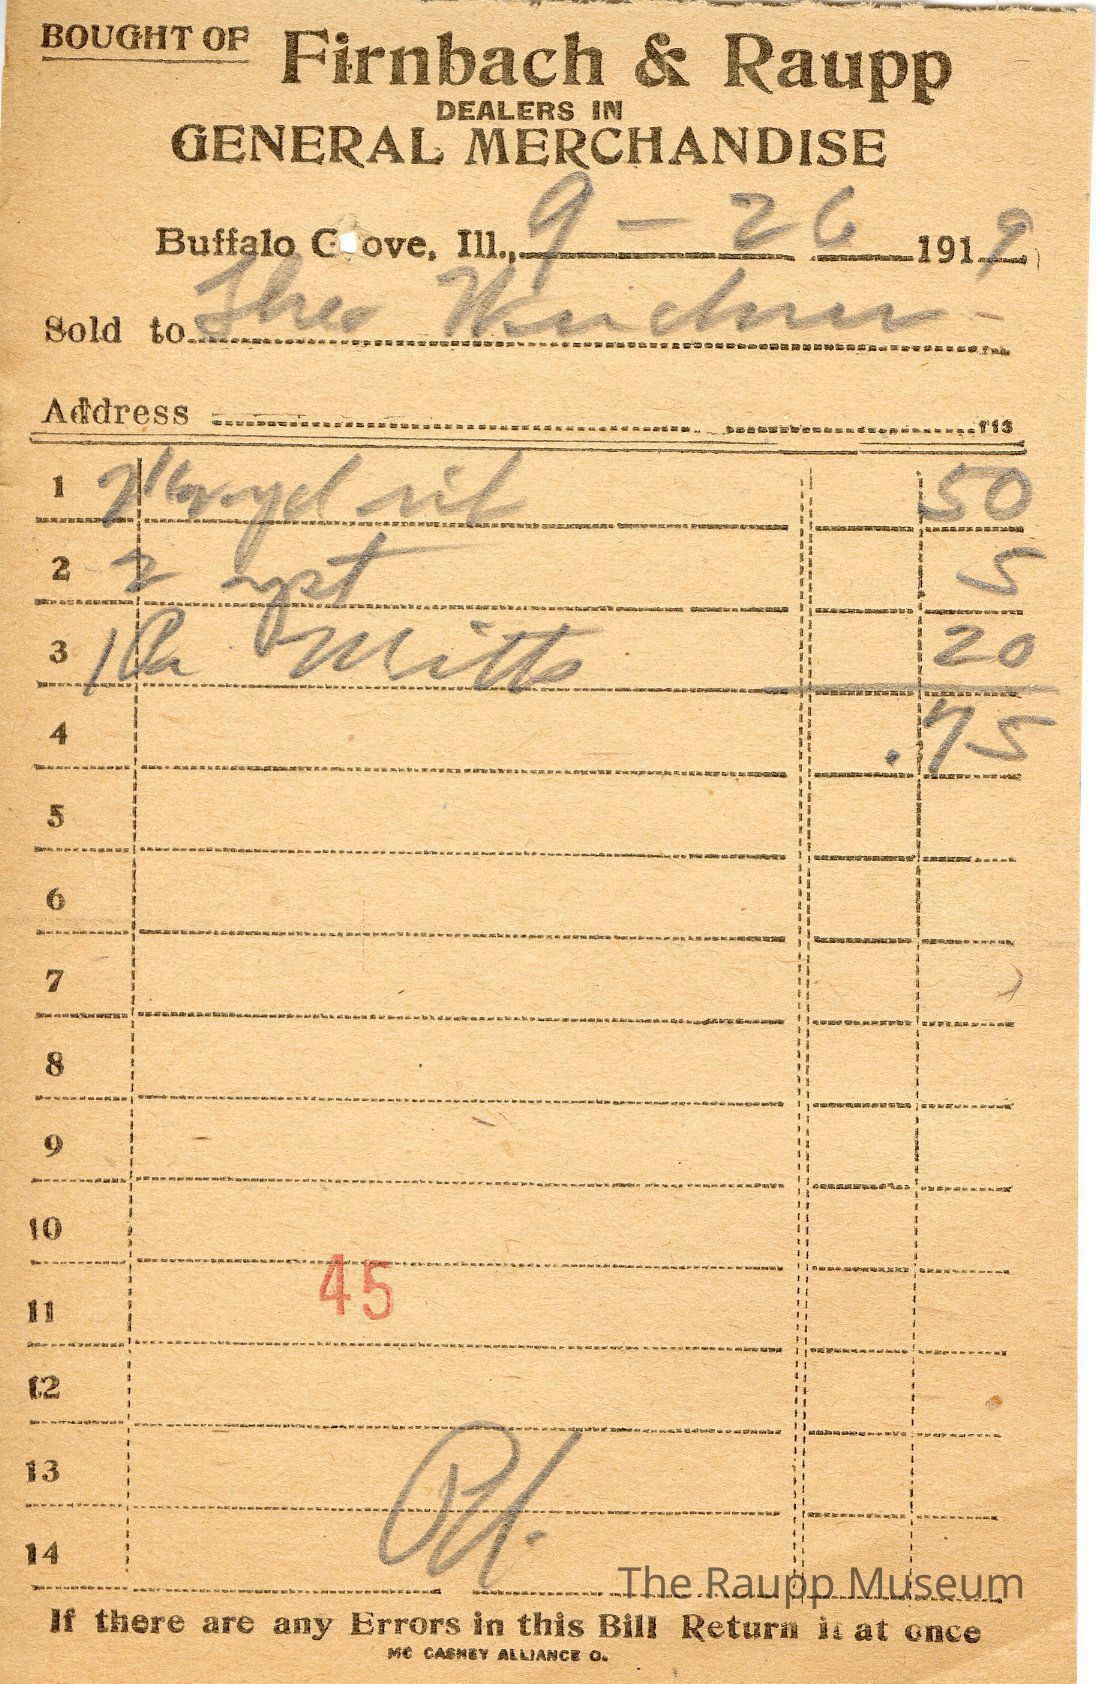 BOUGHT OF Firnbach & Raupp
DEALERS IN
GENERAL MERCHANDISE
Buffalo G ove, Ill., 9 - 26 1919
Sold to Theo
Address 113
1 50
2 2 5
3 1 Pr Mitts 20
4 .75
5
6
7
8
9
10
45
11
12
13
14
The Raupp Museum
If there are any Errors in this Bill Return it at once
MC CASKEY ALLIANCE O.